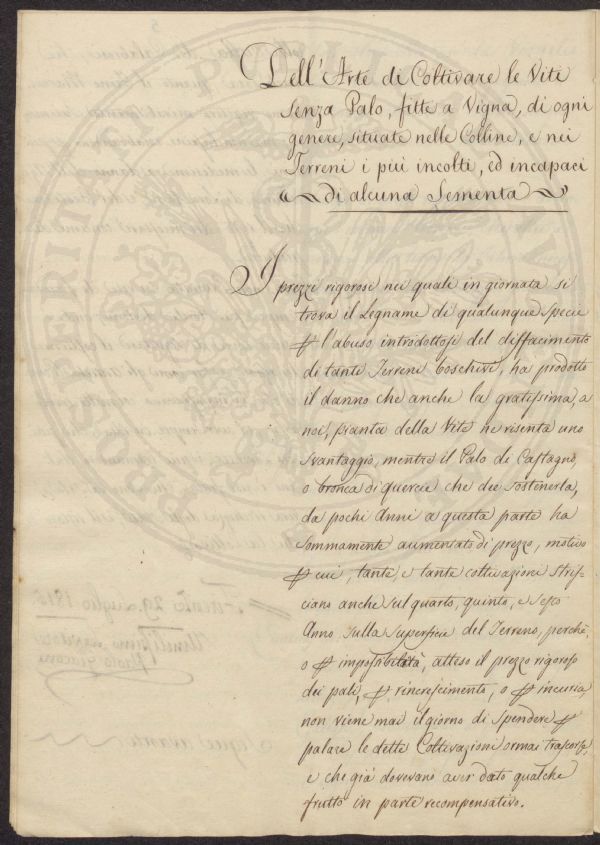 Dell'Arte di Coltivare le Vite
senza Palo, fitte a Vigna, di ogni
genere, situate nelle Colline, e nei
Terreni i più incolti, ed incapaci
di alcuna Sementa
I prezzi rigorosi nei quali in giornata si
trova il Legname di qualunque specie
p l'abuso introdottosi del disfacimento
di tanti Terreni boschivi, ha prodotto
il danno che anche la gratissima, a
noi, pianta della Vite ne risenta uno
svantaggio, mentre il Palo di Castagno,
o bronca di quercie che dee sostenerla,
da pochi Anni a questa parte ha
sommamente aumentato di prezzo, motivo
p cui, tante, e tante coltivazioni stris-
ciano anche sul quarto, quinto, e sesto
Anno sulla superficie del Terreno, perchè
o p impossibilità, atteso il prezzo rigoroso
dei pali, p rincrescimento, o p incuria,
non viene mai il giorno di spendere p
palare le dette Coltivazioni ormai trascorse,
e che già dovevano aver dato qualche
frutto in parte recompensativo.